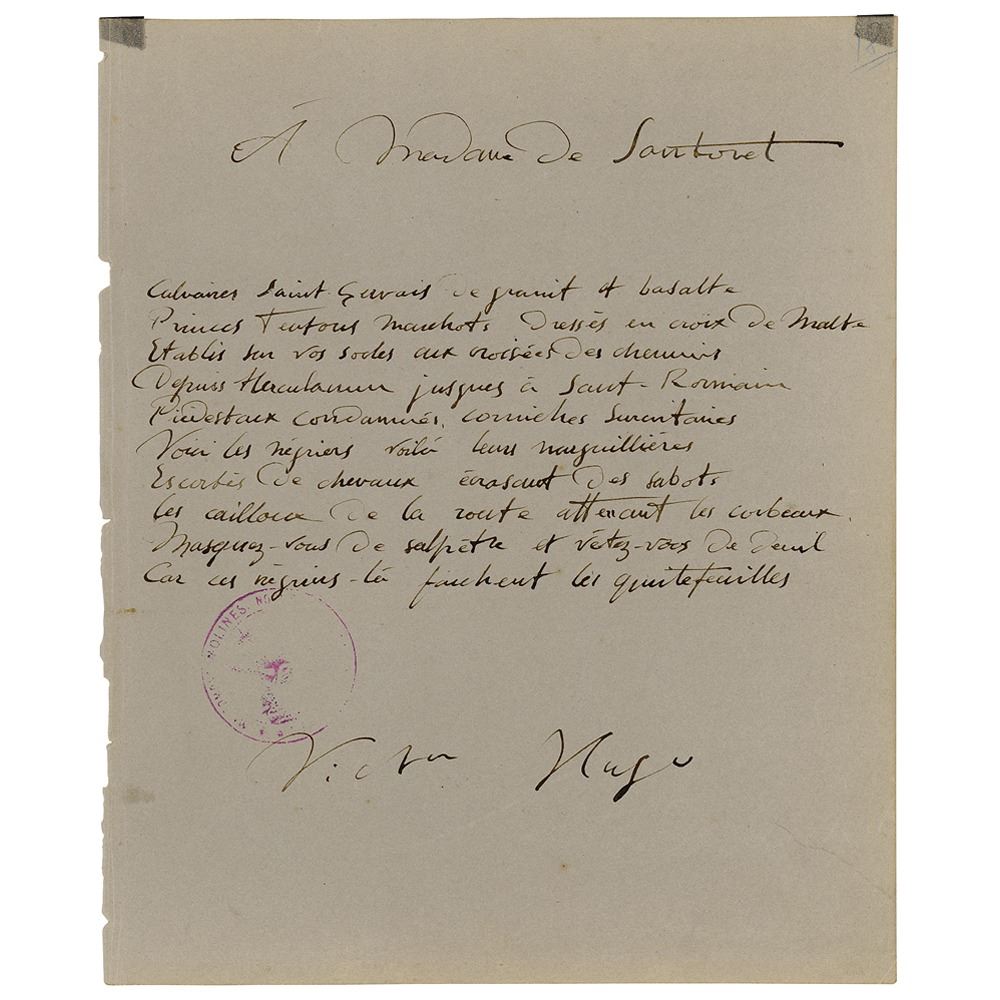 À Madame de
Calvaires Saint-Gervais de granit et basalte
Princes Teutons manchots dressés en croix de Malte
Etablis sur vos socles aux croisées des chemins
Depuis Herculanum jusques à Saint-Romain
Piédestaux condamnés, corniches
Voici les négriers voilà leurs narguillières
Escortés de chevaux écrasant des sabots
les cailloux de la route les corbeaux.
Masquez-vous de salpêtre et vêtez-vous de deuil
Car ces négriers-là fauchent les
MOLINES
Victor Hugo